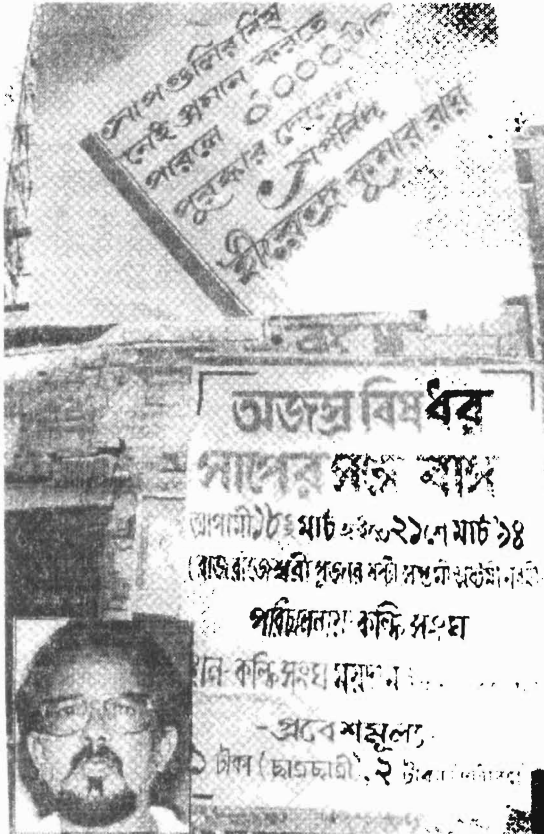 সাপগুলির বিষ
নেই প্রমান করতে
পারলে ৫০০০ টাকা
পুরস্কার দেবেন
সর্পবিদ
কুমার রায়
অজস্র বিষধর
সাপের সঙ্গে বাস
আগামী ১৮ই মার্চ হইতে ২১শে মার্চ '৯৪
(রাজরাজেশ্বরী পূজার ষষ্ঠী সপ্তমী অষ্টমী নবমী
পরিচালনায় কল্কি সংঘ
স্থান- কল্কি সংঘ ময়দান
-প্রবেশমূল্য-
১ টাকা (ছাত্রছাত্রী), ২ টাকা